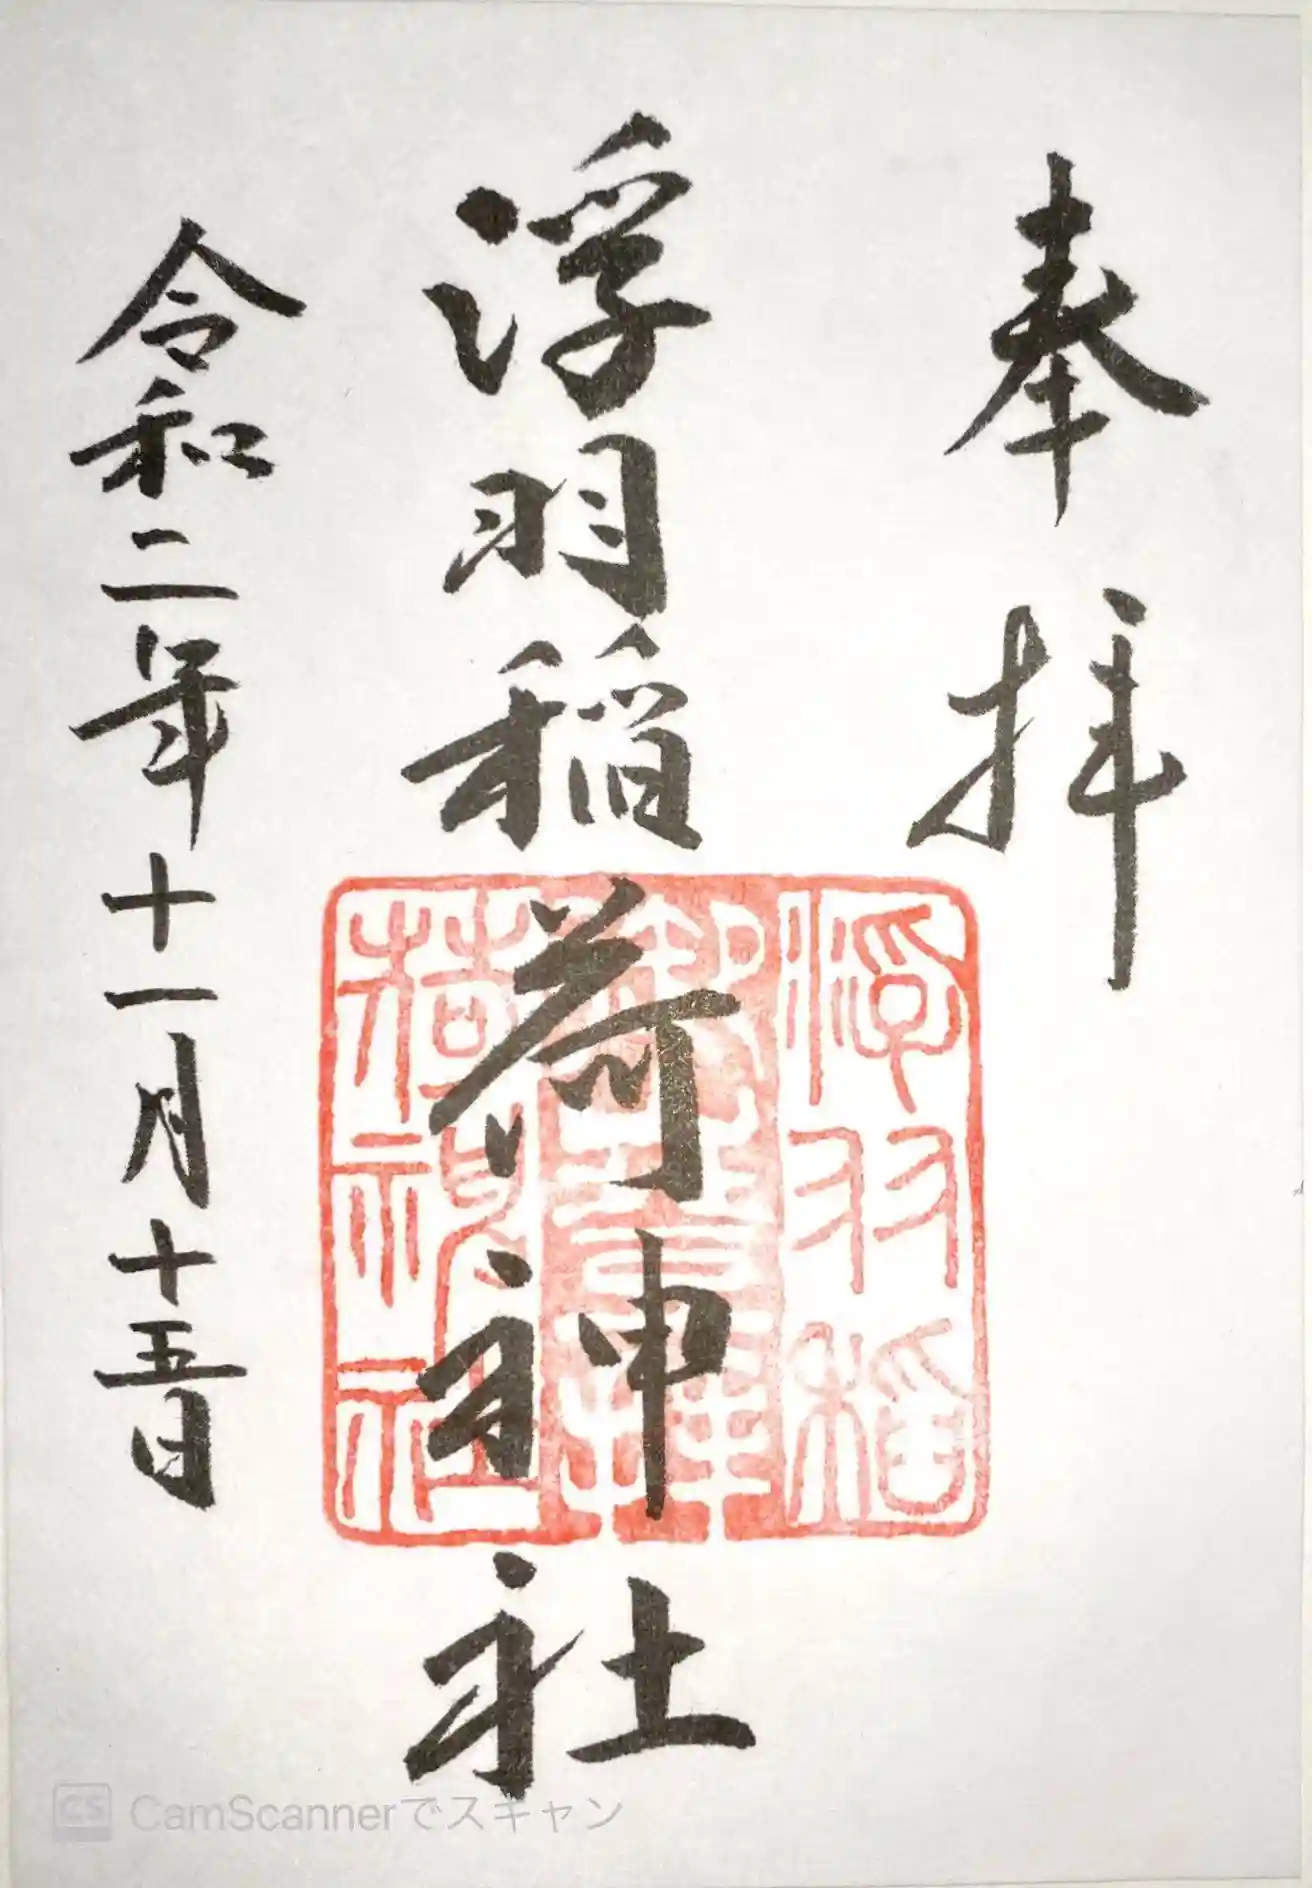 奉拝
浮羽稲荷神社
令和二年十一月十五日
浮羽稲
荷神社
CS CamScannerでスキャン